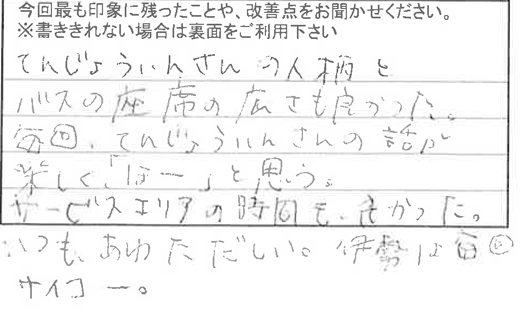 今回最も印象に残ったことや、改善点をお聞かせください。
※書ききれない場合は裏面をご利用下さい
てんじょういんさんの人柄と
バスの座席の広さも良かった。
毎回、てんじょういんさんの話が
楽しく、「ほー」と思う。
サービスエリアの時間も、良かった。
いつも、あわただしい。伊勢は毎回
サイコー。